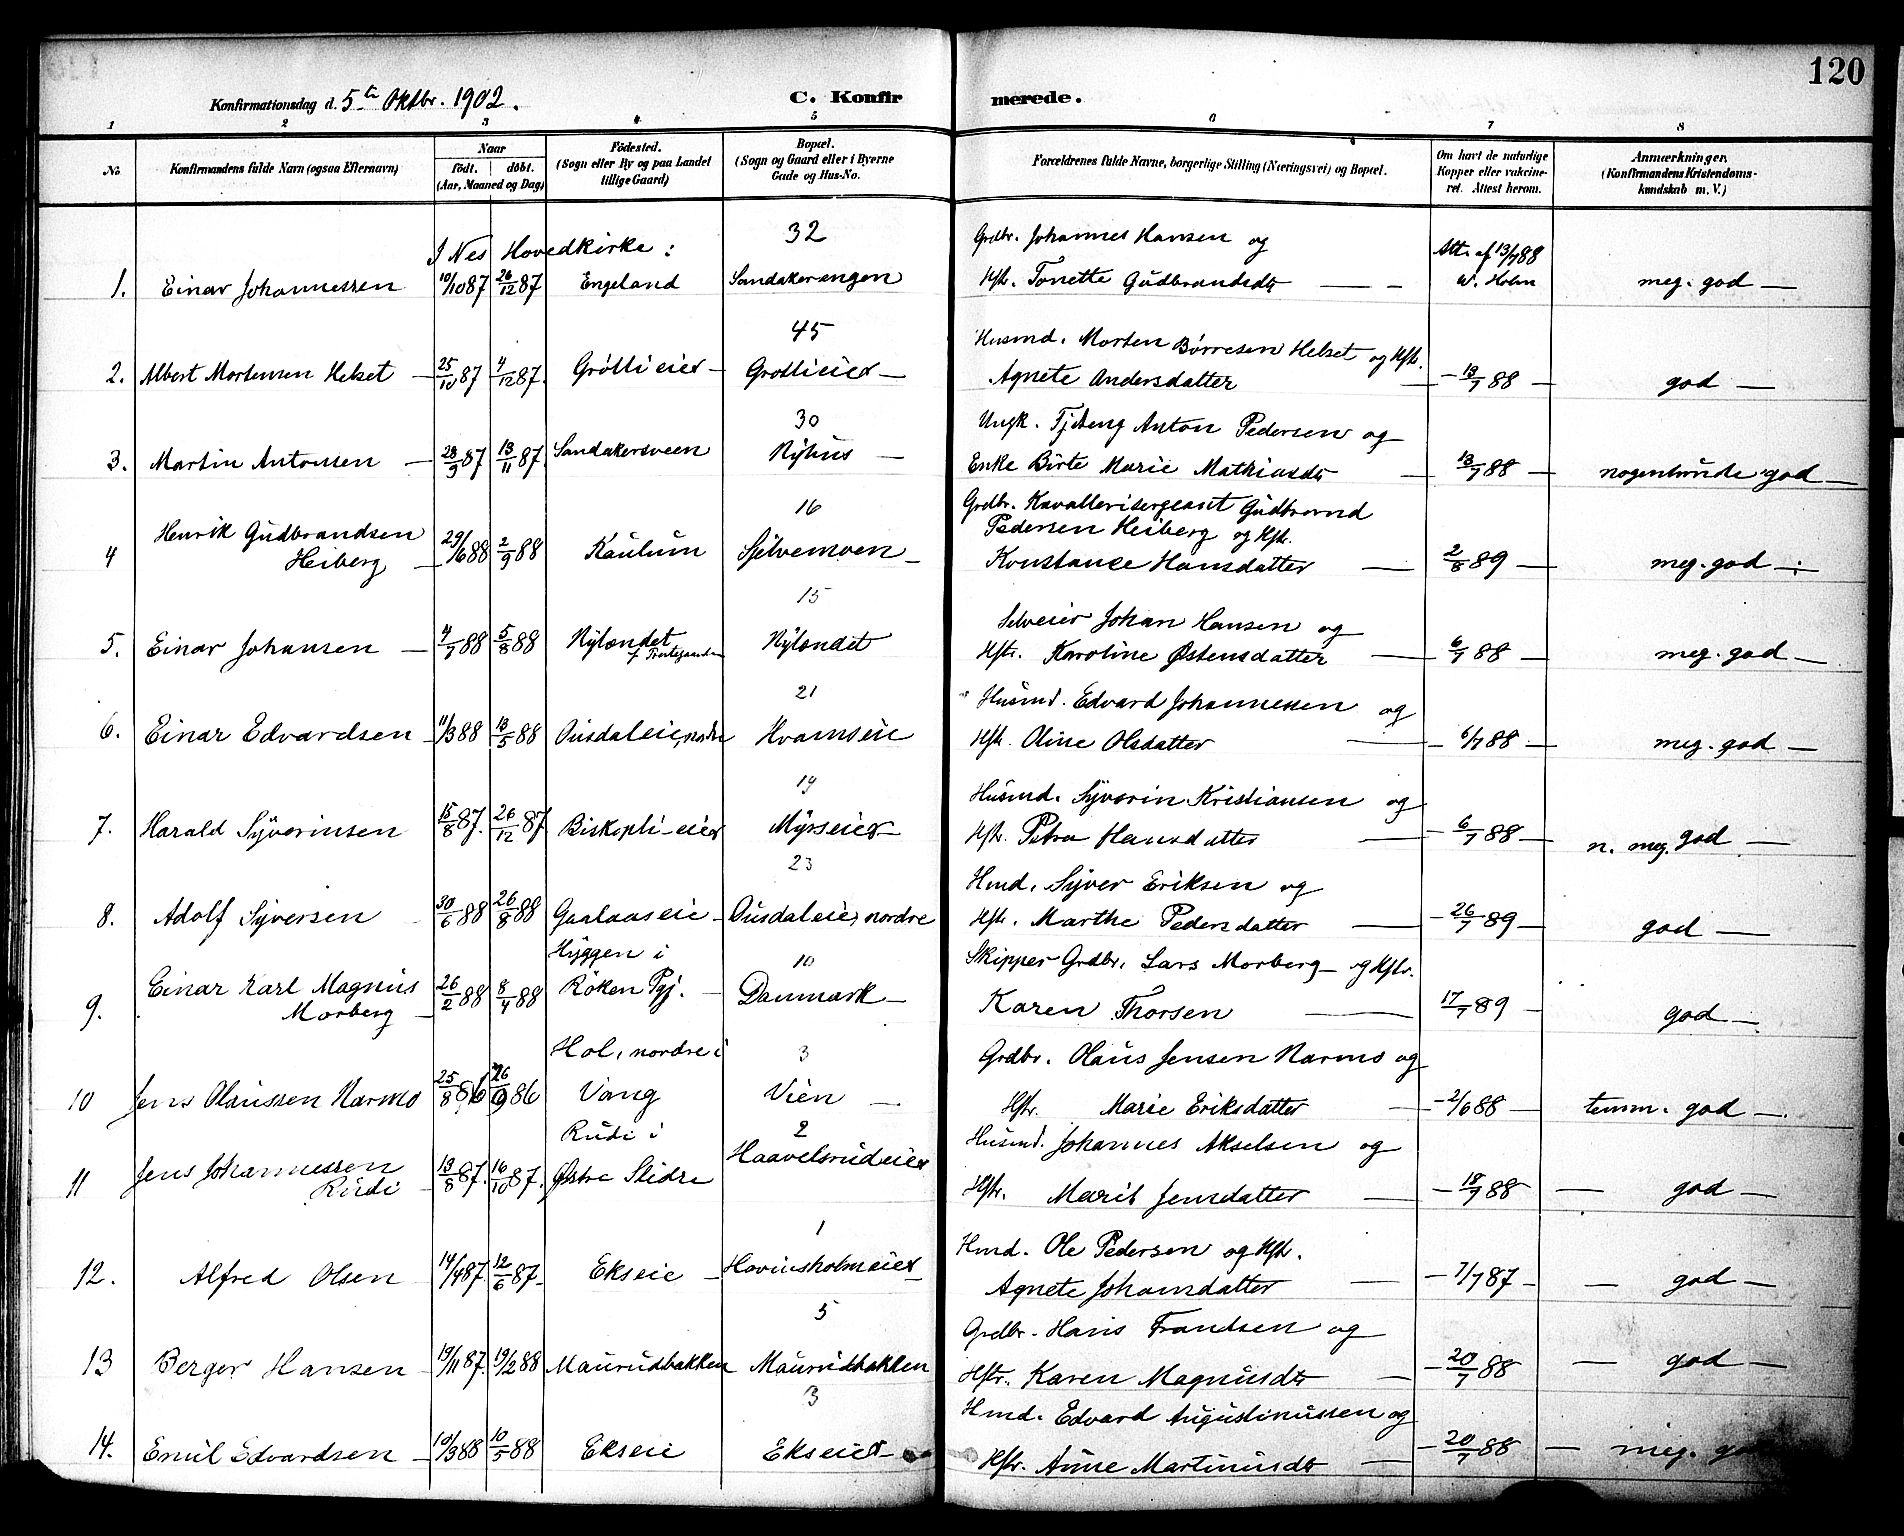 120
Konfirmationsdag d. 5te Oktbr. 1902. C. Konfirmerede.
1 2 3 4 5 6 7 8
No. Konfirmandens fulde Navn (ogsaa Efternavn) Naar født. døbt. (Aar, Maaned og Dag) Fødested. (Sogn eller By og paa Landet tillige Gaard) Bopæl. (Sogn og Gaard eller i Byerne Gade og Hus-No. Forældrenes fulde Navne, borgerlige Stilling (Næringsvei) og Bopæl. Om havt de naturlige Kopper eller vakcineret. Attest herom. Anmærkninger. (Konfirmandens Kristendomskundskab m. V.)
I Nes Hovedkirke: 32 Grdbr. Johannes Hansen og Att. af 13/7 88
1. Einar Johannessen 10/10 87 26/12 87 Engeland Sandakerengen Hstr. Tonette Gudbrandsdtr — W. Holm meg. god —
45 Husmd. Morten Børresen Helset og Hstr.
2. Albert Mortensen Helset — 25/10 87 4/12 87. Grøtlieier — Grøtlieier — Agnete Andersdatter — 13/7 88 — god —
30 Ungk. Tjsteng Anton Pedersen og
3. Martin Antonsen — 28/9 87 13/11 87. Sandakersveen Nyhus — Enke Birte Marie Mathiasdtr — 13/7 88 — nogenlunde god —
16 Grdbr. Kavallerisergeant Gudbrand
Henrik Gudbrandsen Pedersen Heiberg og Hstr.
4 Heiberg — 29/6 88 2/9 88 Kaulum Sjelvemoen — Konstance Hansdatter — 2/8 89 — meg. god —
15 Selveier Johan Hansen og
5. Einar Johansen — 4/7 88 5/8 88 Nylændet Nylændet Hstr. Karoline Østensdatter — 6/7 88 — meg. god —
21 Husmd. Edvard Johannessen og
6. Einar Edvardsen — 11/3 88 13/5 88 Ousdaleie, nordre Hvamseie Hstr. Oline Olsdatter — 6/7 88 — meg. god —
19 Husmd. Syverin Kristiansen og
7. Harald Syverinsen 15/8 87. 26/12 87 Biskoplieier Myrseier Hstr. Petra Hansdatter — 6/7 88 — n. meg. god —
23 Hmd. Syver Eriksen og
8. Adolf Syversen 30/6 88 26/8 88 Gaalaaseie — Ousdaleier, nordre Hstr. Marthe Pedersdatter — 26/7 89 — god —
Hyggen i 10 Skipper Grdbr. Lars Morberg og Hstr.
9. Einar Karl Magnus Morberg — 26/2 88 8/4 88 Røken Pgj. — Danmark — Karen Thorsen — 17/7 89 — god —
Hol, nordre i 3 Grdbr. Olaus Jensen Narmo og
10 Jens Olaussen Narmo 25/8 86 26/9 86 Vang Vien — Hstr. Marie Eriksdatter — 2/6 88 — temm. god —
Rudi i 2 Husmd. Johannes Akselsen og
11 Jens Johannessen Rudi — 13/8 87. 16/10 87. Østre Slidre Haavelsrudeier Hstr. Marit Jensdatter — 18/7 88 — god —
1 Hmd. Ole Pedersen og Hstr.
12. Alfred Olsen 14/4 87. 12/6 87. Ekseie — Hovinsholmeier Agnete Johansdatter — 7/7 87 — god —
5 Grdbr. Hans Frandsen og
13 Berger Hansen — 19/11 87. 19/2 88 Maurudbakken Maurudbakken Hstr. Karen Magnusdtr — 20/7 88 — god —
3 Hmd. Edvard Augustinussen og
14. Emil Edvardsen — 10/3 88 10/5 88 Ekseie Ekseier — Hstr. Anne Martinusdtr — 20/7 88 — meg. god